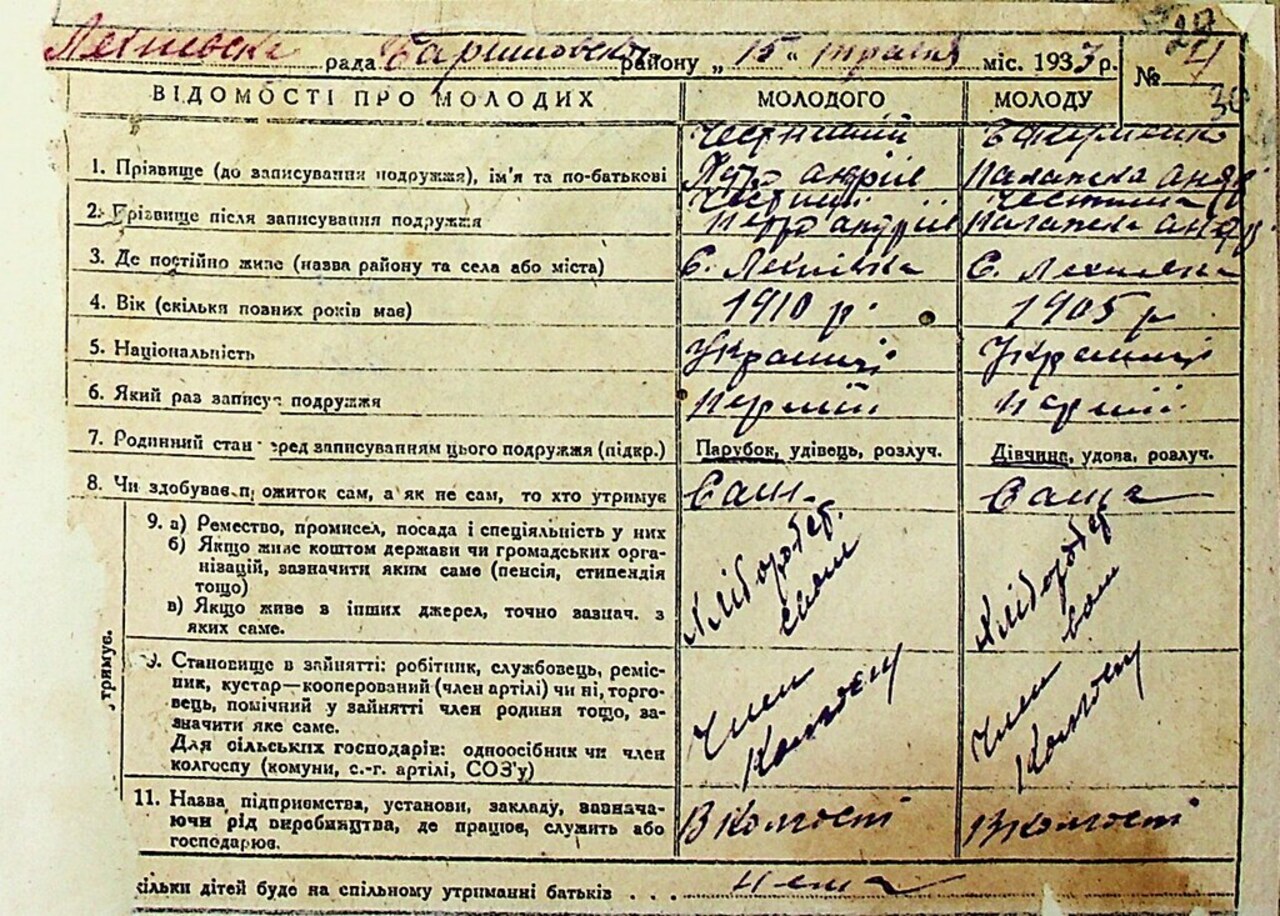 рада району „ 15 “ травня міс. 1933 р.
№ 4
ВІДОМОСТІ ПРО МОЛОДИХ МОЛОДОГО МОЛОДУ
1. Прізвище (до записування подружжя), ім'я та по-батькові
Петро Андріїв
2. Прізвище після записування подружжя
Петро Андріїв
3. Де постійно живе (назва району та села або міста) С. С.
4. Вік (скільки повних років має) 1910 р. 1905 р
5. Національність Українці Українці
6. Який раз запису подружжя перший перший
7. Родинний стан еред записуванням цього подружжя (підкр.) Парубок, удівець, розлуч. Дівчина, удова, розлуч.
8. Чи здобував п ожиток сам, а як не сам, то хто утримує Сам Сама
9. а) Ремество, промисел, посада і спеціяльність у них
б) Якщо живе коштом держави чи громадських орга-
нізацій, зазначити яким саме (пенсія, стипендія
тощо)
в) Якщо живе в інших джерел, точно зазнач. з
яких саме.
Хлібороб
Хлібороб
тримує.
Становище в зайнятті: робітник, службовець, реміс-
ник, кустар—кооперований (член артілі) чи ні, торго-
вець, помічний у зайнятті член родини тощо, за-
значити яке саме.
Для сільських господарів: одноосібник чи член
колгоспу (комуни, с.-г. артілі, СОЗ'у)
Член
колгоспу
Член
колгоспу
11. Назва підприємства, установи, закладу, зазнача-
ючи рід виробництва, де працює, служить або
господарює.
В колгості
В колгості
кільки дітей буде на спільному утриманні батьків . . . нема